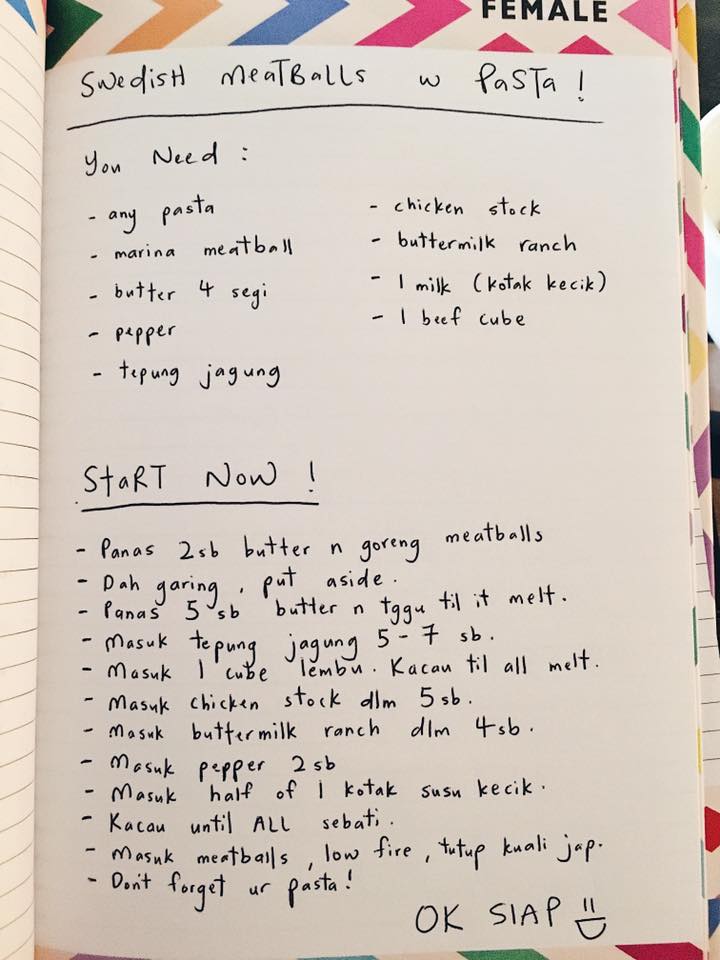 FEMALE
Swedish meatballs w Pasta !
You Need :
- any pasta
- marina meatball
- butter 4 segi
- pepper
- tepung jagung
- chicken stock
- buttermilk ranch
- 1 milk (kotak kecik)
- 1 beef cube
Start Now !
- Panas 2sb butter n goreng meatballs
- Dah garing, put aside.
- Panas 5 sb butter n tggu til it melt.
- Masuk tepung jagung 5 - 7 sb.
- Masuk 1 cube lembu. Kacau til all melt.
- Masuk chicken stock dlm 5sb.
- Masuk buttermilk ranch dlm 4sb.
- Masuk pepper 2sb
- Masuk half of 1 kotak susu kecik.
- Kacau until ALL sebati.
- Masuk meatballs, low fire, tutup kuali jap.
- Don't forget ur pasta!
OK SIAP